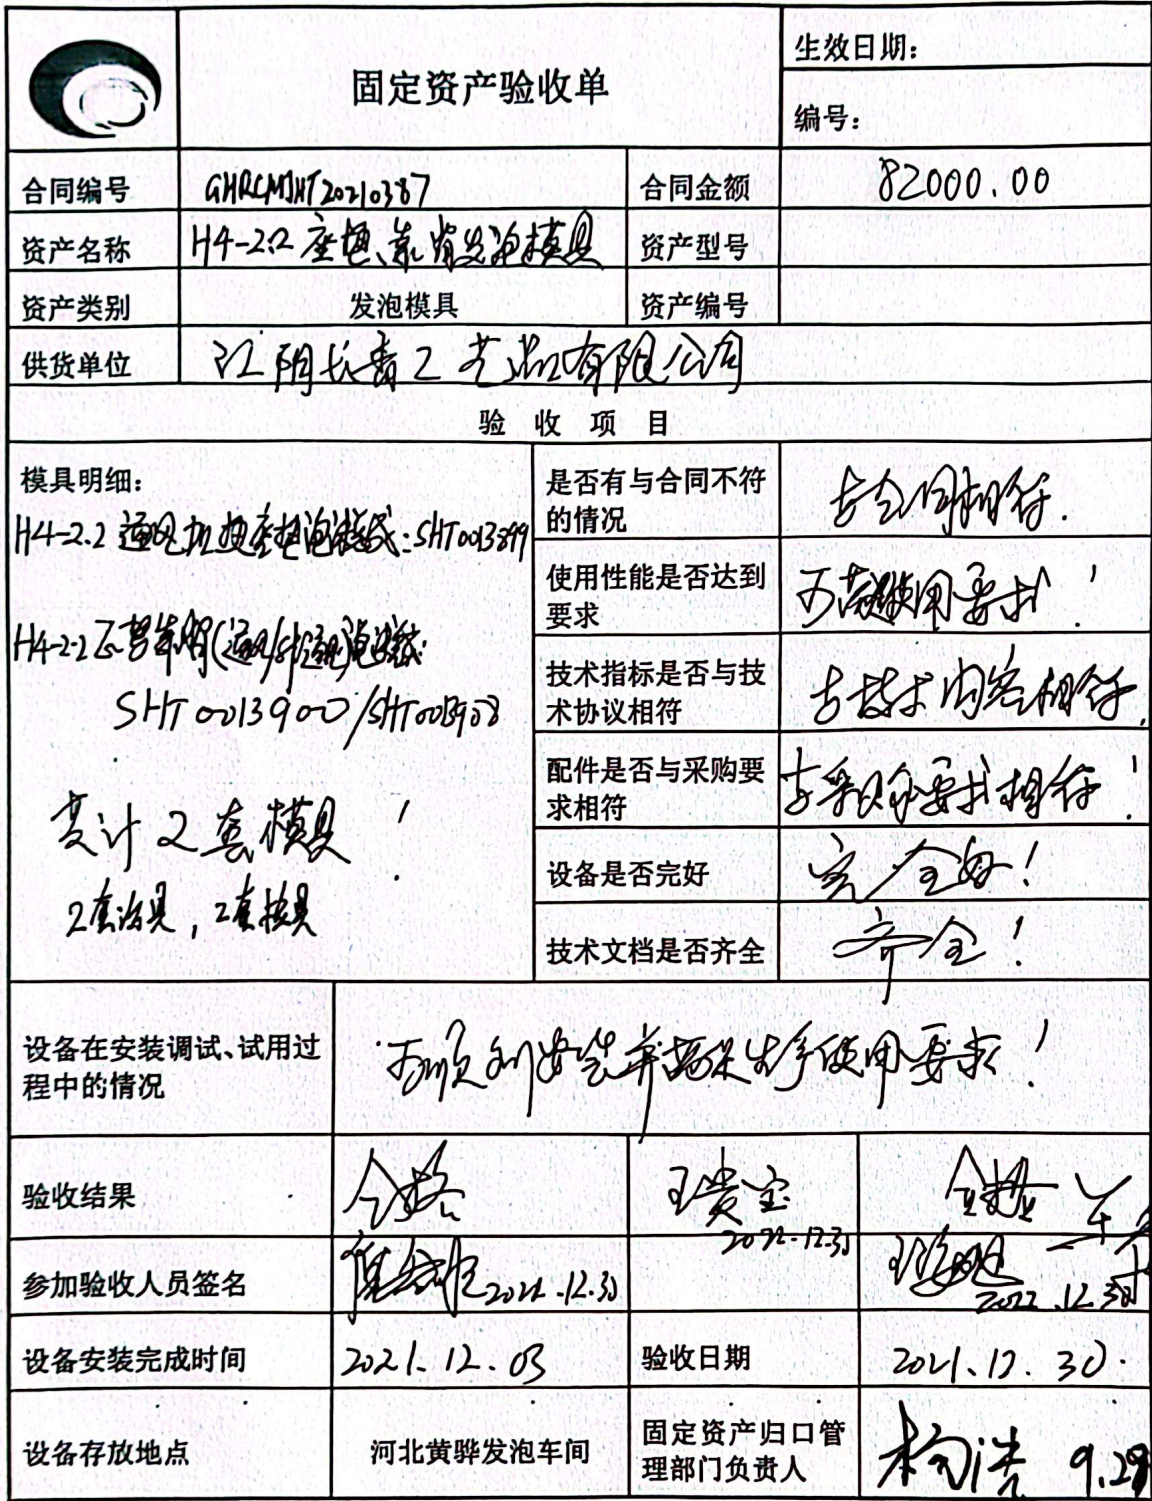 固定资产验收单
生效日期：
编号：
合同编号 GHRCMJHT20210387 合同金额 82000.00
资产名称 H4-2.2座垫、靠背发泡模具 资产型号
资产类别 发泡模具 资产编号
供货单位 江阴长青工艺品有限公司
验收项目
模具明细：
H4-2.2通风加热座垫泡沫总成：SHT0013899
H4-2.2
SHT0013900/SHT0013908
共计2套模具！
2套治具，2套检具
是否有与合同不符
的情况
与合同相符.
使用性能是否达到
要求
可满足使用要求！
技术指标是否与技
术协议相符
与技术内容相符.
配件是否与采购要
求相符
与采购要求相符！
设备是否完好
完全好！
技术文档是否齐全
齐全！
设备在安装调试、试用过
程中的情况
可顺利安装并满足生产使用要求！
验收结果 合格 王贵宝 合格
2022.12.30
参加验收人员签名 2022.12.30 2022.12.30
设备安装完成时间 2021.12.03 验收日期 2021.12.30.
设备存放地点 河北黄骅发泡车间
固定资产归口管
理部门负责人
杨浩 9.29